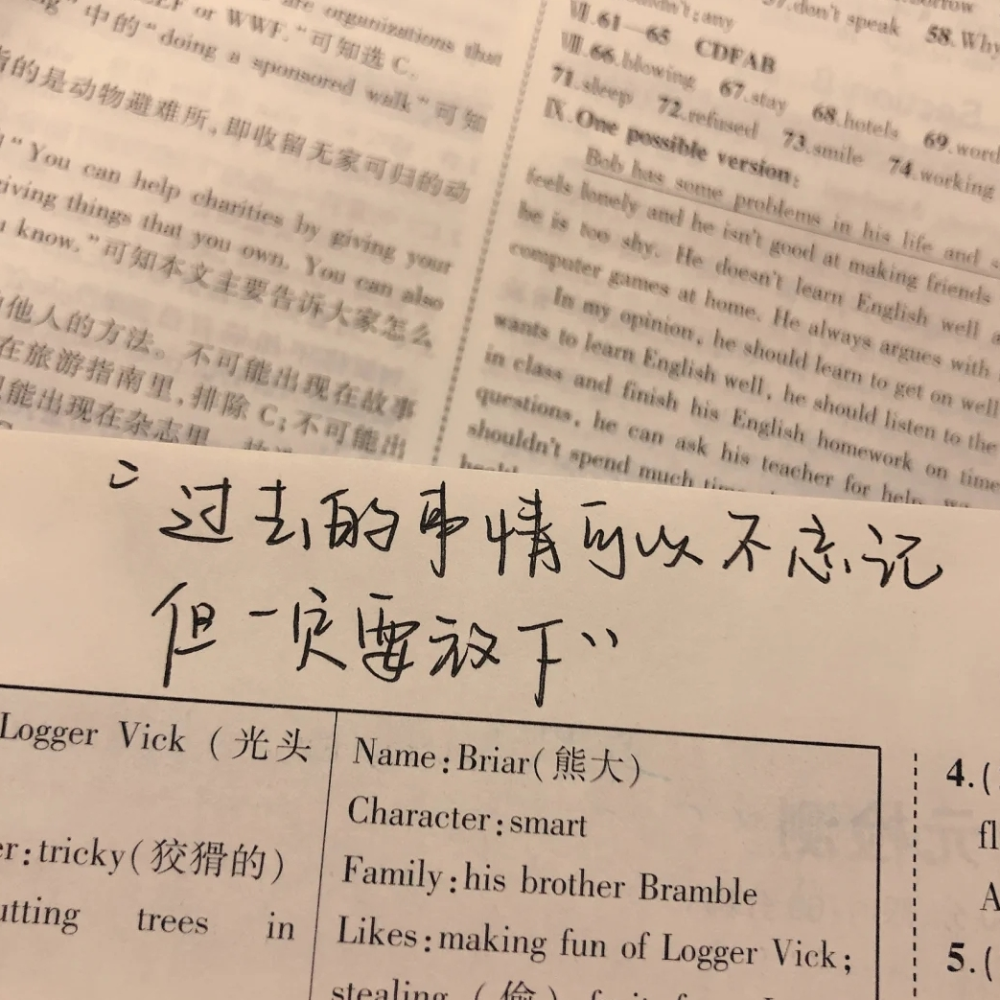 or WWF."可知选 C.
"中的"doing a sponsored walk"可知
的是动物避难所,即收留无家可归的动
"You can help charities by giving your
giving things that you own. You can also
know."可知本文主要告诉大家怎么
他人的方法。不可能出现在故事
在旅游指南里,排除 C;不可能出
能出现在杂志里
57.don't speak 58.Why
Ⅶ.61—65 CDFAB
Ⅷ.66.blowing 67.stay 68.hotels 69.word
71.sleep 72.refused 73.smile 74.working
Ⅸ.One possible version:
Bob has some problems in his life and
feels lonely and he isn't good at making friends
he is too shy. He doesn't learn English well
computer games at home. He always argues with
In my opinion, he should learn to get on well
wants to learn English well, he should listen to the
in class and finish his English homework on time
questions, he can ask his teacher for help
shouldn't spend much
"过去的事情可以不忘记
但一定要放下"
Logger Vick (光头
er:tricky(狡猾的)
utting trees in
Name:Briar(熊大)
Character:smart
Family:his brother Bramble
Likes:making fun of Logger Vick;
stealing (偷)
4.(
fl
A
5.(